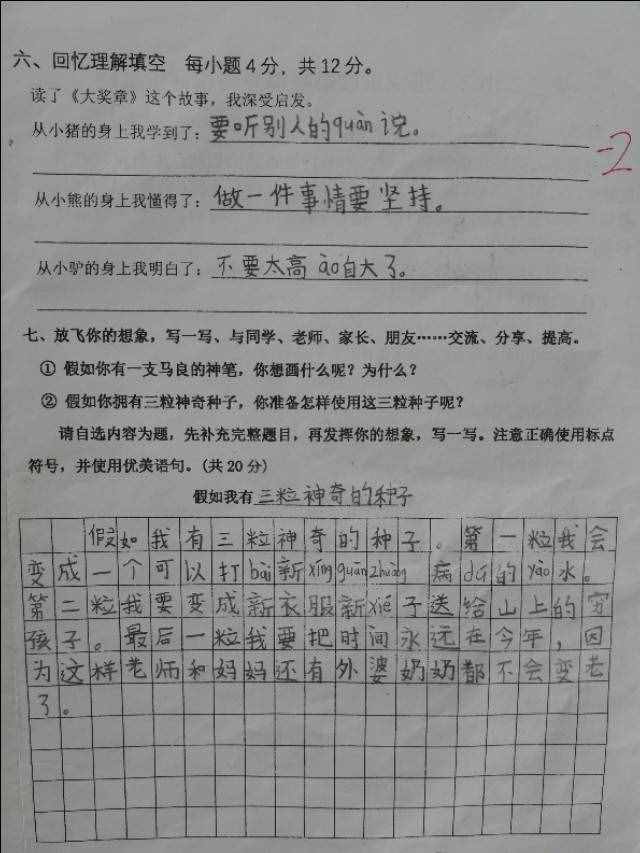 六、回忆理解填空 每小题4分，共12分。
读了《大奖章》这个故事，我深受启发。
从小猪的身上我学到了：要听别人的quàn说。
-2
从小熊的身上我懂得了：做一件事情要坚持。
从小驴的身上我明白了：不要太高ào自大了。
七、放飞你的想象，写一写、与同学、老师、家长、朋友……交流、分享、提高。
① 假如你有一支马良的神笔，你想画什么呢？为什么？
② 假如你拥有三粒神奇种子，你准备怎样使用这三粒种子呢？
请自选内容为题，先补充完整题目，再发挥你的想象，写一写。注意正确使用标点
符号，并使用优美语句。（共20分）
假如我有三粒神奇的种子
假如我有三粒神奇的种子。第一粒我会
变成一个可以打bài新xíng guān zhuàng 病dú的yào水。
第二粒我要变成新衣服新xié子送给山上的穷
孩子。最后一粒我要把时间永远在今年，因
为这样老师和妈妈还有外婆奶奶都不会变老
了。